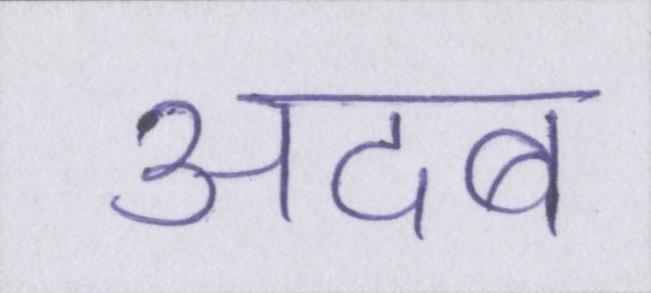 अदब